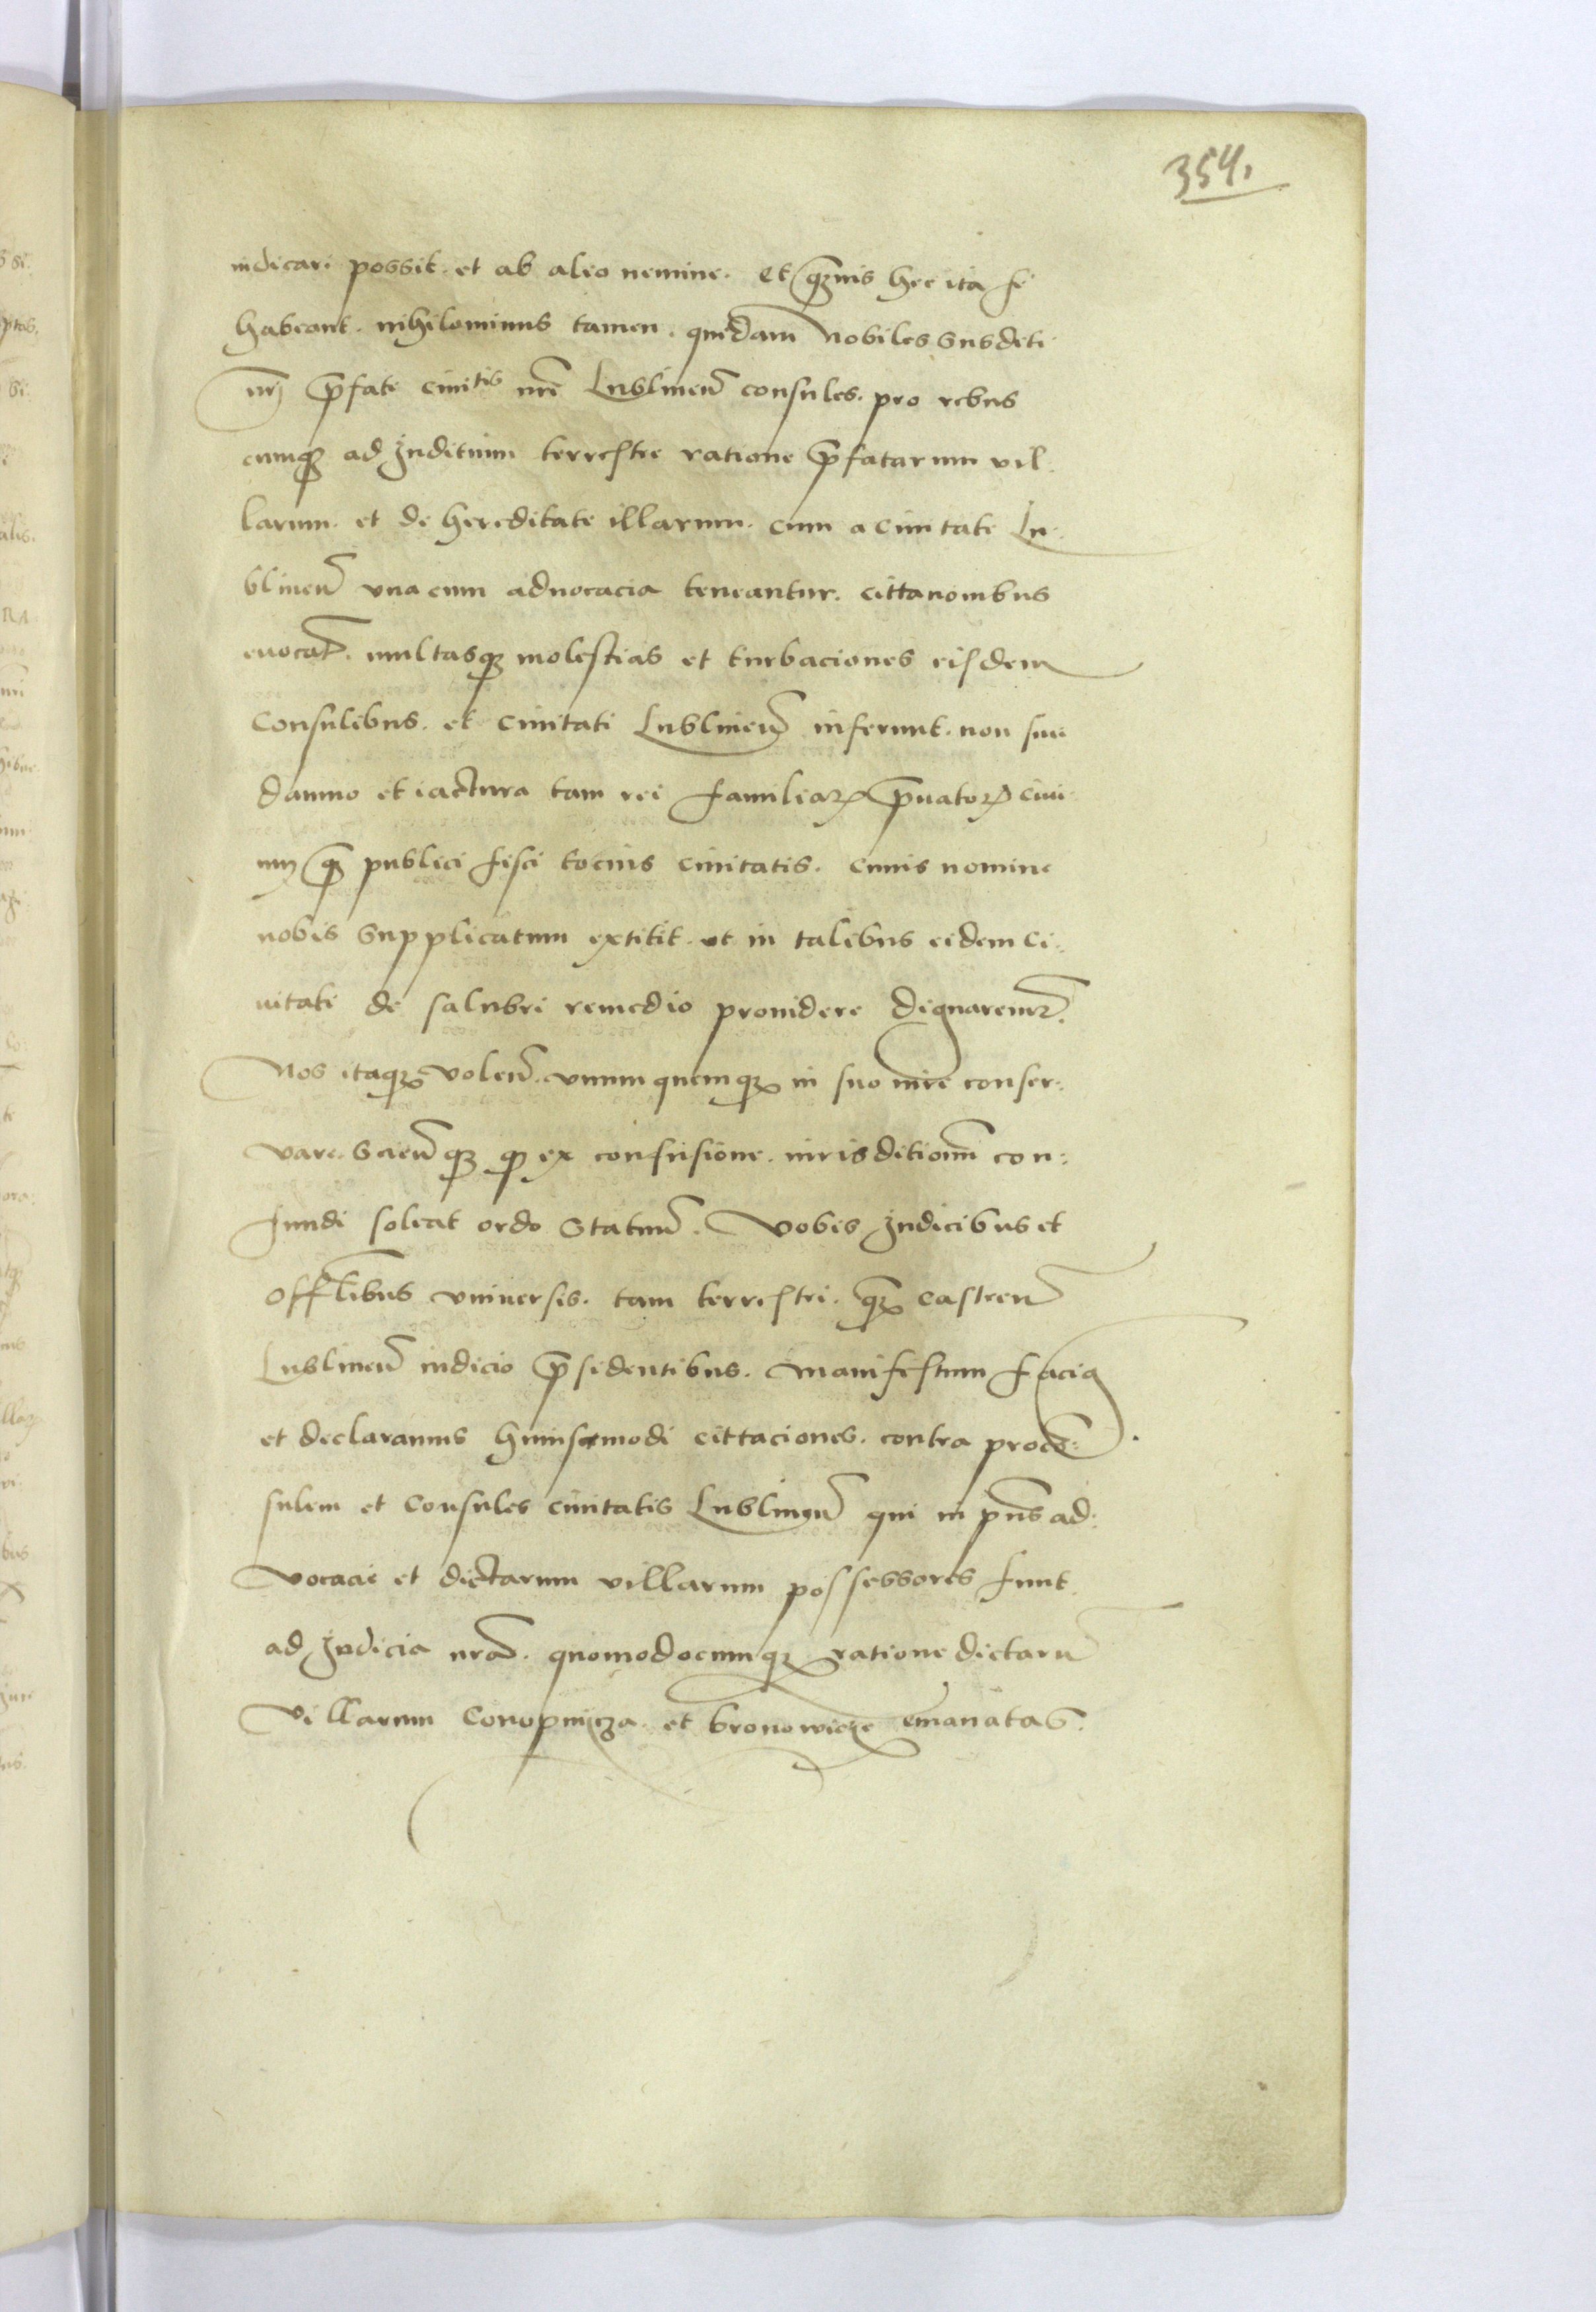 354.
iudicari possit. et ab aleo nemine. Et q̃uis hec ita se
habeant. nihilominus tamen. quidam Nobiles Subditi
nrj p̃fate ciuitis nrẽ Lublineñ consules. pro rebus
cumqʒ ad Juditium terrestre ratione p̃fatarum vil:
larum. et de hereditate illarum. cum a ciuitate Lu:
blineñ vna cum aduocacia teneantur. cittacionibus
euocat̃. multasqʒ molestias et turbaciones eisdem
Consulibus. et Ciuitati Lublineñ inferunt. non sine
damno et iactura tam rei familiarꝝ p̃uatorꝝ ciui
um q̃ publici fisci tocius ciuitatis. Cuius nomine
nobis Supplicatum extitit. ut in talibus eidem Ci:
uitati de salubri remedio prouidere dignaremur.
Nos itaqʒ voleñ. vnumquemqʒ in suo iure conser:
vare. Scieñqʒ qꝫ ex confusione. iurisditionũ con:
fundi soleat ordo Statuũ. Vobis Judicibus et
Offl̃ibus vniuersis. tam terrestri. q̃ʒ castreñ
Lublineñ iudicio p̃sidentibus. Manifestum facig
et declaramus huiuscemodi cittaciones. contra procõ:
sulem et Consules ciuitatis Lublineñ qui in pñs ad:
vocacie et dictarum villarum possessores sunt.
ad Judicia nr̃a. quomodocumqʒ ratione dictarũ
Villarum Conopnicza. et bronowicze emanatas.